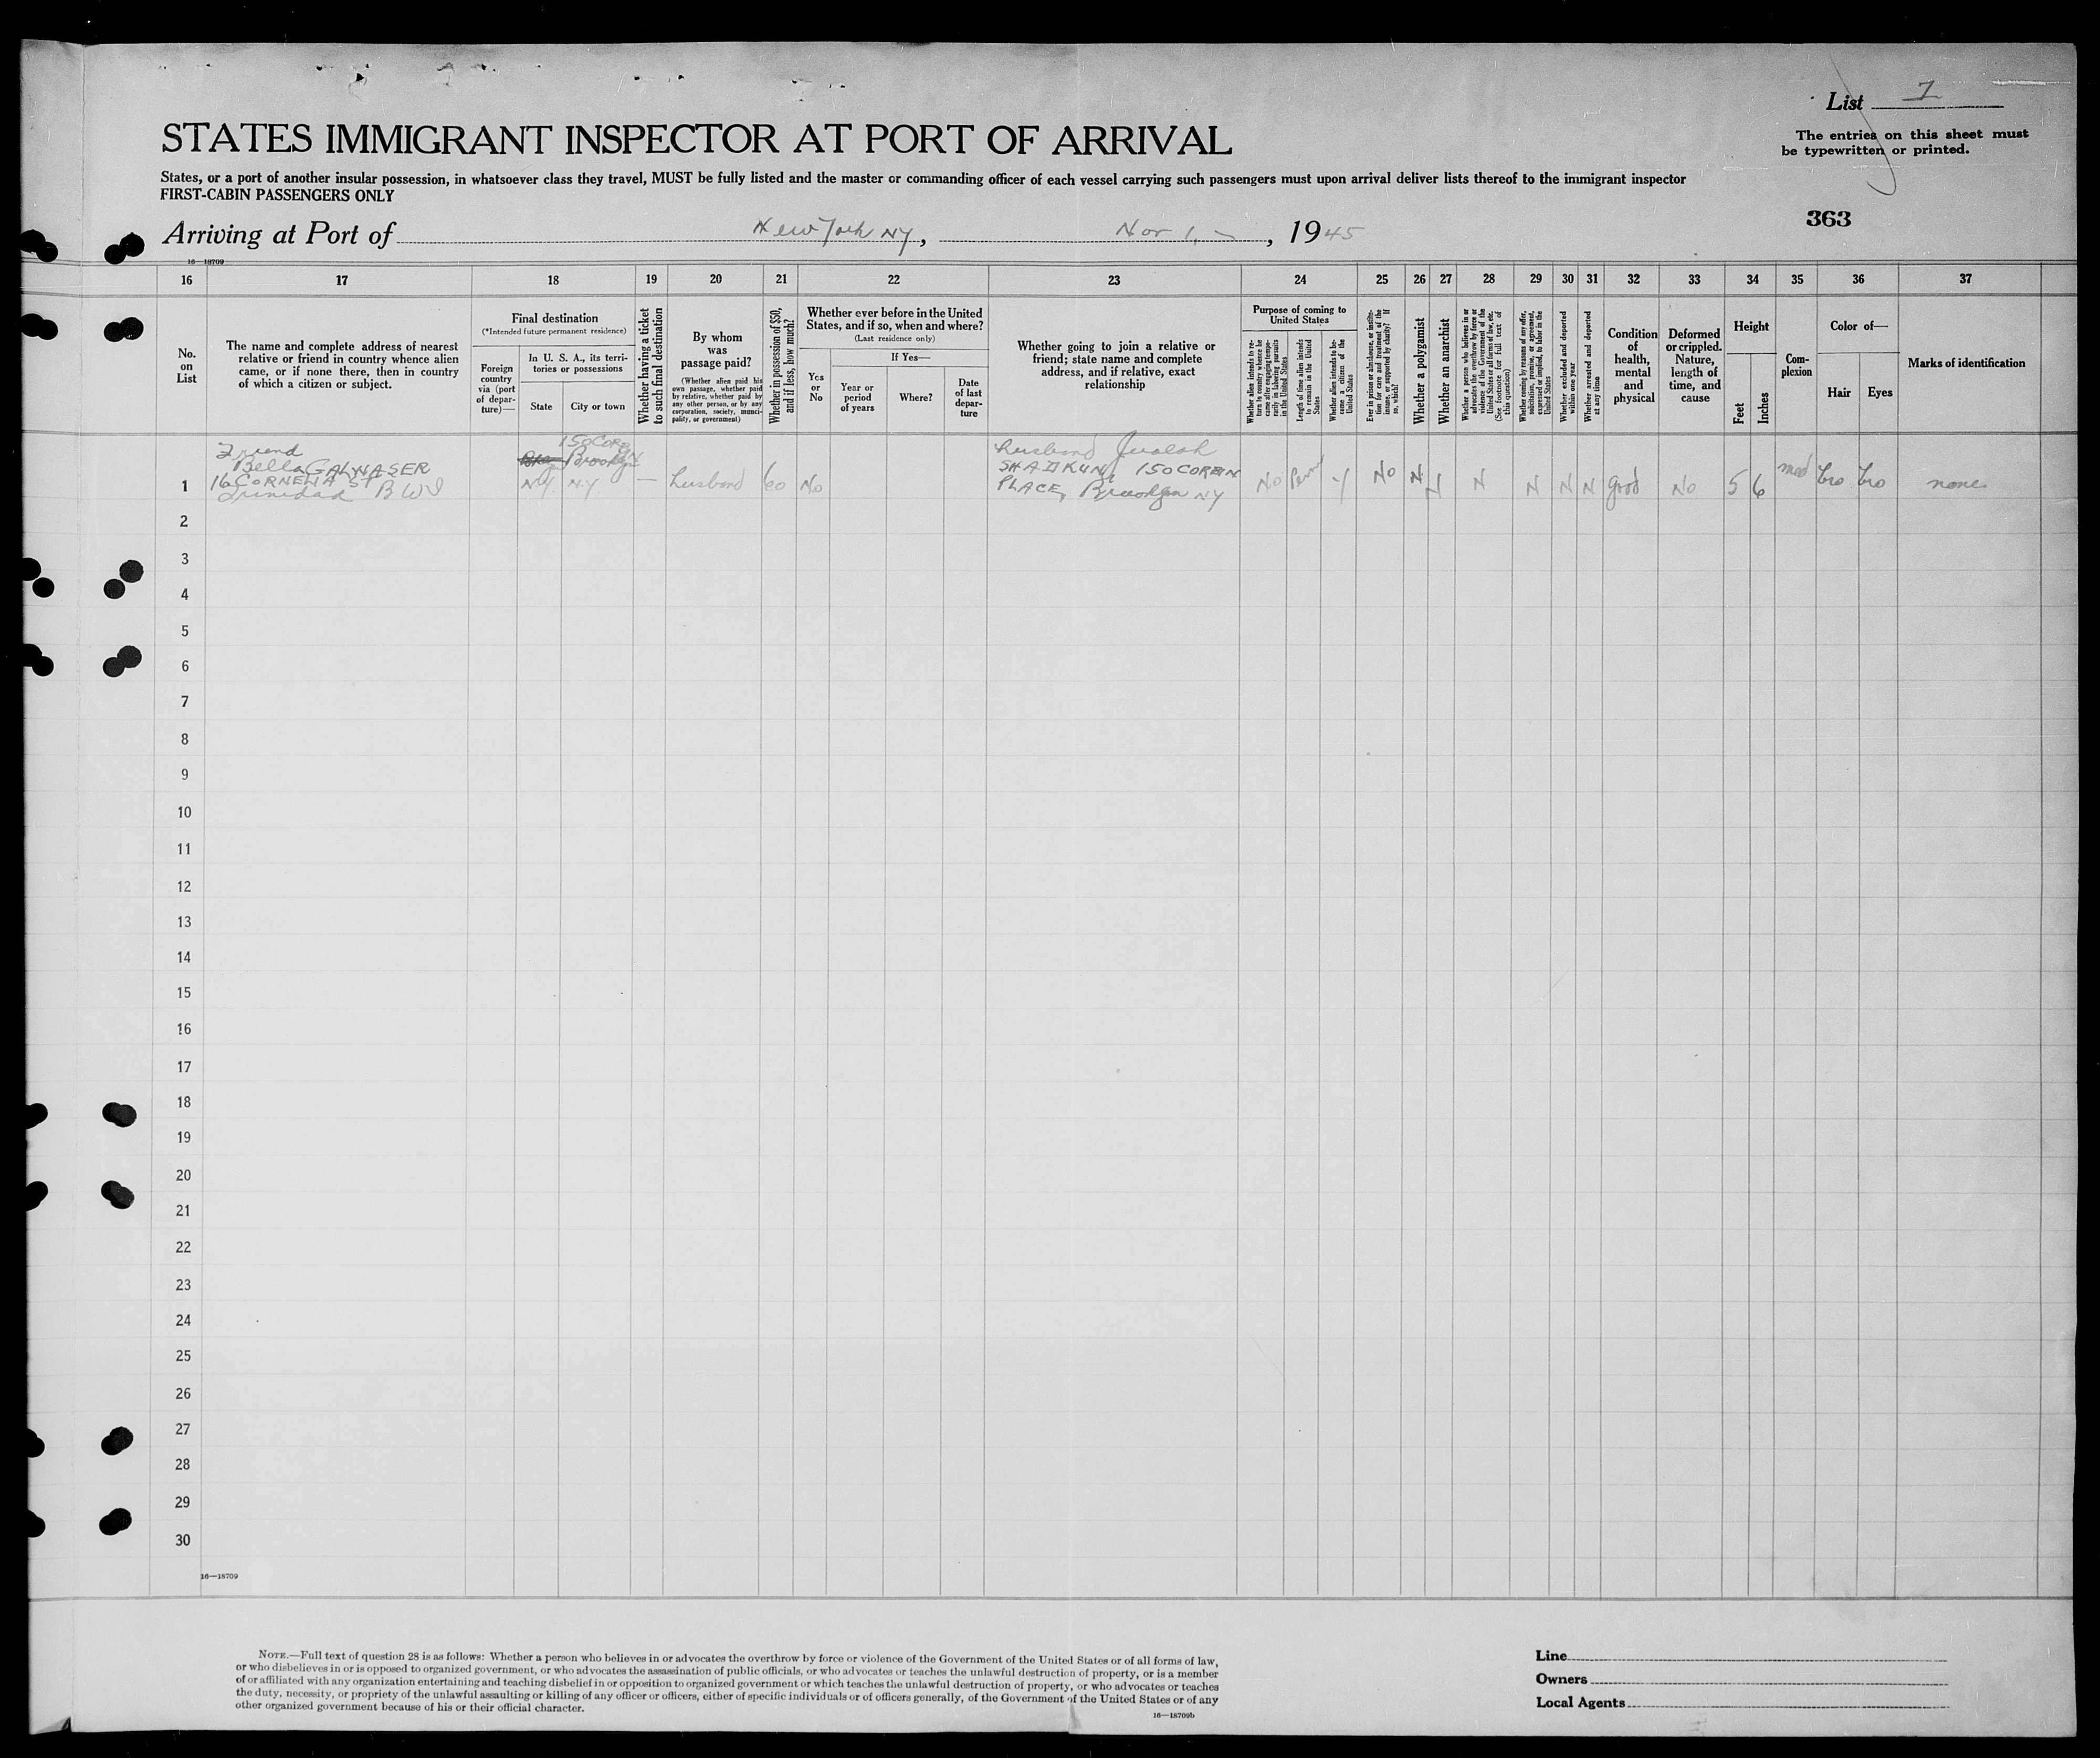 List 7
The entries on this sheet must
be typewritten or printed.
STATES IMMIGRANT INSPECTOR AT PORT OF ARRIVAL
States, or a port of another insular possession, in whatsoever class they travel, MUST be fully listed and the master or commanding officer of each vessel carrying such passengers must upon arrival deliver lists thereof to the immigrant inspector
FIRST-CABIN PASSENGERS ONLY
363
Arriving at Port of New York NY, Nov 1, 1945
16—18709
16 17 18 19 20 21 22 23 24 25 26 27 28 29 30 31 32 33 34 35 36 37
No.
on
List
The name and complete address of nearest
relative or friend in country whence alien
came, or if none there, then in country
of which a citizen or subject.
Final destination
(*Intended future permanent residence)
Foreign
country
via (port
of depar-
ture)—
In U. S. A., its terri-
tories or possessions
State
City or town
Whether having a ticket
to such final destination
By whom
was
passage paid?
(Whether alien paid his
own passage, whether paid
by relative, whether paid by
any other person, or by any
corporation, society, munici-
pality, or government)
Whether in possession of $50,
and if less, how much?
Whether ever before in the United
States, and if so, when and where?
(Last residence only)
Yes
or
No
If Yes—
Year or
period
of years
Where?
Date
of last
depar-
ture
Whether going to join a relative or
friend; state name and complete
address, and if relative, exact
relationship
Purpose of coming to
United States
Whether alien intends to re-
turn to country whence he
came after engaging tempo-
rarily in laboring pursuits
in the United States
Length of time alien intends
to remain in the United
States
Whether alien intends to be-
come a citizen of the
United States
Ever in prison or almshouse, or institu-
tion for care and treatment of the
insane, or supported by charity? If
so, which?
Whether a polygamist
Whether an anarchist
Whether a person who believes in or
advocates the overthrow by force or
violence of the Government of the
United States or all forms of law, etc.
(See footnote for full text of
this question)
Whether coming by reasons of any offer,
solicitation, promise, or agreement,
expressed or implied, to labor in the
United States
Whether excluded and deported
within one year
Whether arrested and deported
at any time
Condition
of
health,
mental
and
physical
Deformed
or crippled.
Nature,
length of
time, and
cause
Height
Feet
Inches
Com-
plexion
Color of—
Hair
Eyes
Marks of identification
Friend
Bella GALWASER
16 CORNELIA ST
Trinidad BWI
150 Corb
Brooklyn
NY NY
— husband 60 No
husband
SHADKUN 150 CORBIN
PLACE, Brooklyn NY
No Perm Y No N N N N N N good No 5 6 med bro bro none
1
2
3
4
5
6
7
8
9
10
11
12
13
14
15
16
17
18
19
20
21
22
23
24
25
26
27
28
29
30
16—18709
NOTE.—Full text of question 28 is as follows: Whether a person who believes in or advocates the overthrow by force or violence of the Government of the United States or of all forms of law,
or who disbelieves in or is opposed to organized government, or who advocates the assassination of public officials, or who advocates or teaches the unlawful destruction of property, or is a member
of or affiliated with any organization entertaining and teaching disbelief in or opposition to organized government or which teaches the unlawful destruction of property, or who advocates or teaches
the duty, necessity, or propriety of the unlawful assaulting or killing of any officer or officers, either of specific individuals or of officers generally, of the Government of the United States or of any
other organized government because of his or their official character.
16—18709b
Line
Owners
Local Agents